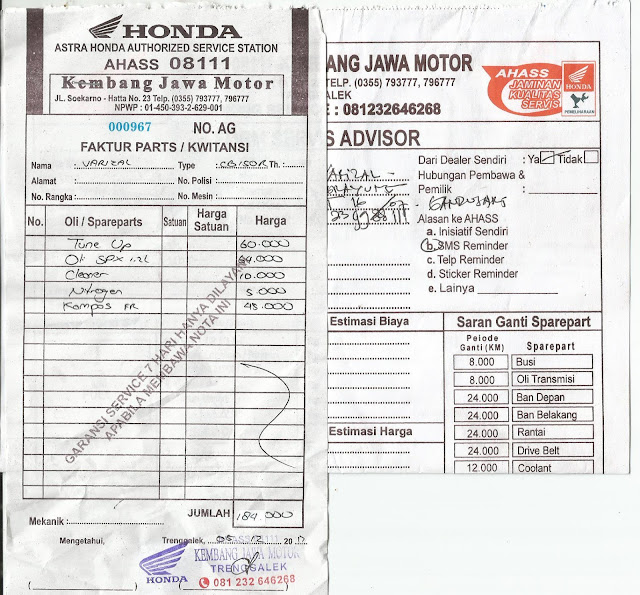 HONDA
ASTRA HONDA AUTHORIZED SERVICE STATION
AHASS 08111
Kembang Jawa Motor
JL. Soekarno - Hatta No. 23 Telp. (0355) 793777, 796777
NPWP : 01-450-393-2-629-001
000967 NO. AG
FAKTUR PARTS / KWITANSI
Nama : VARIZAL Type : CB150R Th. :
Alamat : No. Polisi :
No. Rangka : No. Mesin :
No. Oli / Spareparts Satuan Harga Satuan Harga
Tune Up 60.000
Oli SPX 1.2L 64.000
Cleaner 10.000
Nitrogen 5.000
Kampas FR 45.000
GARANSI SERVICE 7 HARI HANYA DILAYANI
APABILA MEMBAWA NOTA INI
JUMLAH 184.000
Mekanik :
Mengetahui, Trenggalek, 05 12 2017
KEMBANG JAWA MOTOR
TRENGGALEK
HONDA 081 232 646268
BANG JAWA MOTOR
TELP. (0355) 793777, 796777
ALEK
E : 081232646268
AHASS
JAMINAN
KUALITAS
SERVIS
HONDA
PEMELIHARAAN
S ADVISOR
Dari Dealer Sendiri : Ya Tidak
Hubungan Pembawa &
Pemilik :
16 07
Alasan ke AHASS
a. Inisiatif Sendiri
b. SMS Reminder
c. Telp Reminder
d. Stiker Reminder
e. Lainya
Estimasi Biaya
Estimasi Harga
Saran Ganti Sparepart
Peiode Ganti (KM) Sparepart
8.000 Busi
8.000 Oli Transmisi
24.000 Ban Depan
24.000 Ban Belakang
24.000 Rantai
24.000 Drive Belt
12.000 Coolant